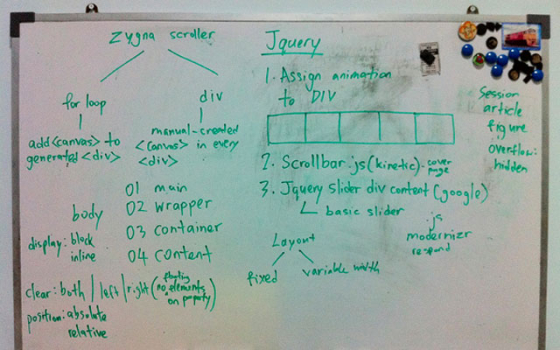 zygna scroller
for loop
add <canvas> to
generated <div>
div
manual-created
<canvas> in every
<div>
body
01 main
02 wrapper
03 container
04 content
display: block
inline
clear: both / left / right (floating
no elements
on property)
position: absolute
relative
Jquery
1. Assign animation
to DIV
2. Scrollbar.js (kinetic). cover
page
3. Jquery slider div content (google)
basic slider
Layout
fixed
variable width
.js
modernizr
respond
Session
article
figure
overflow:
hidden